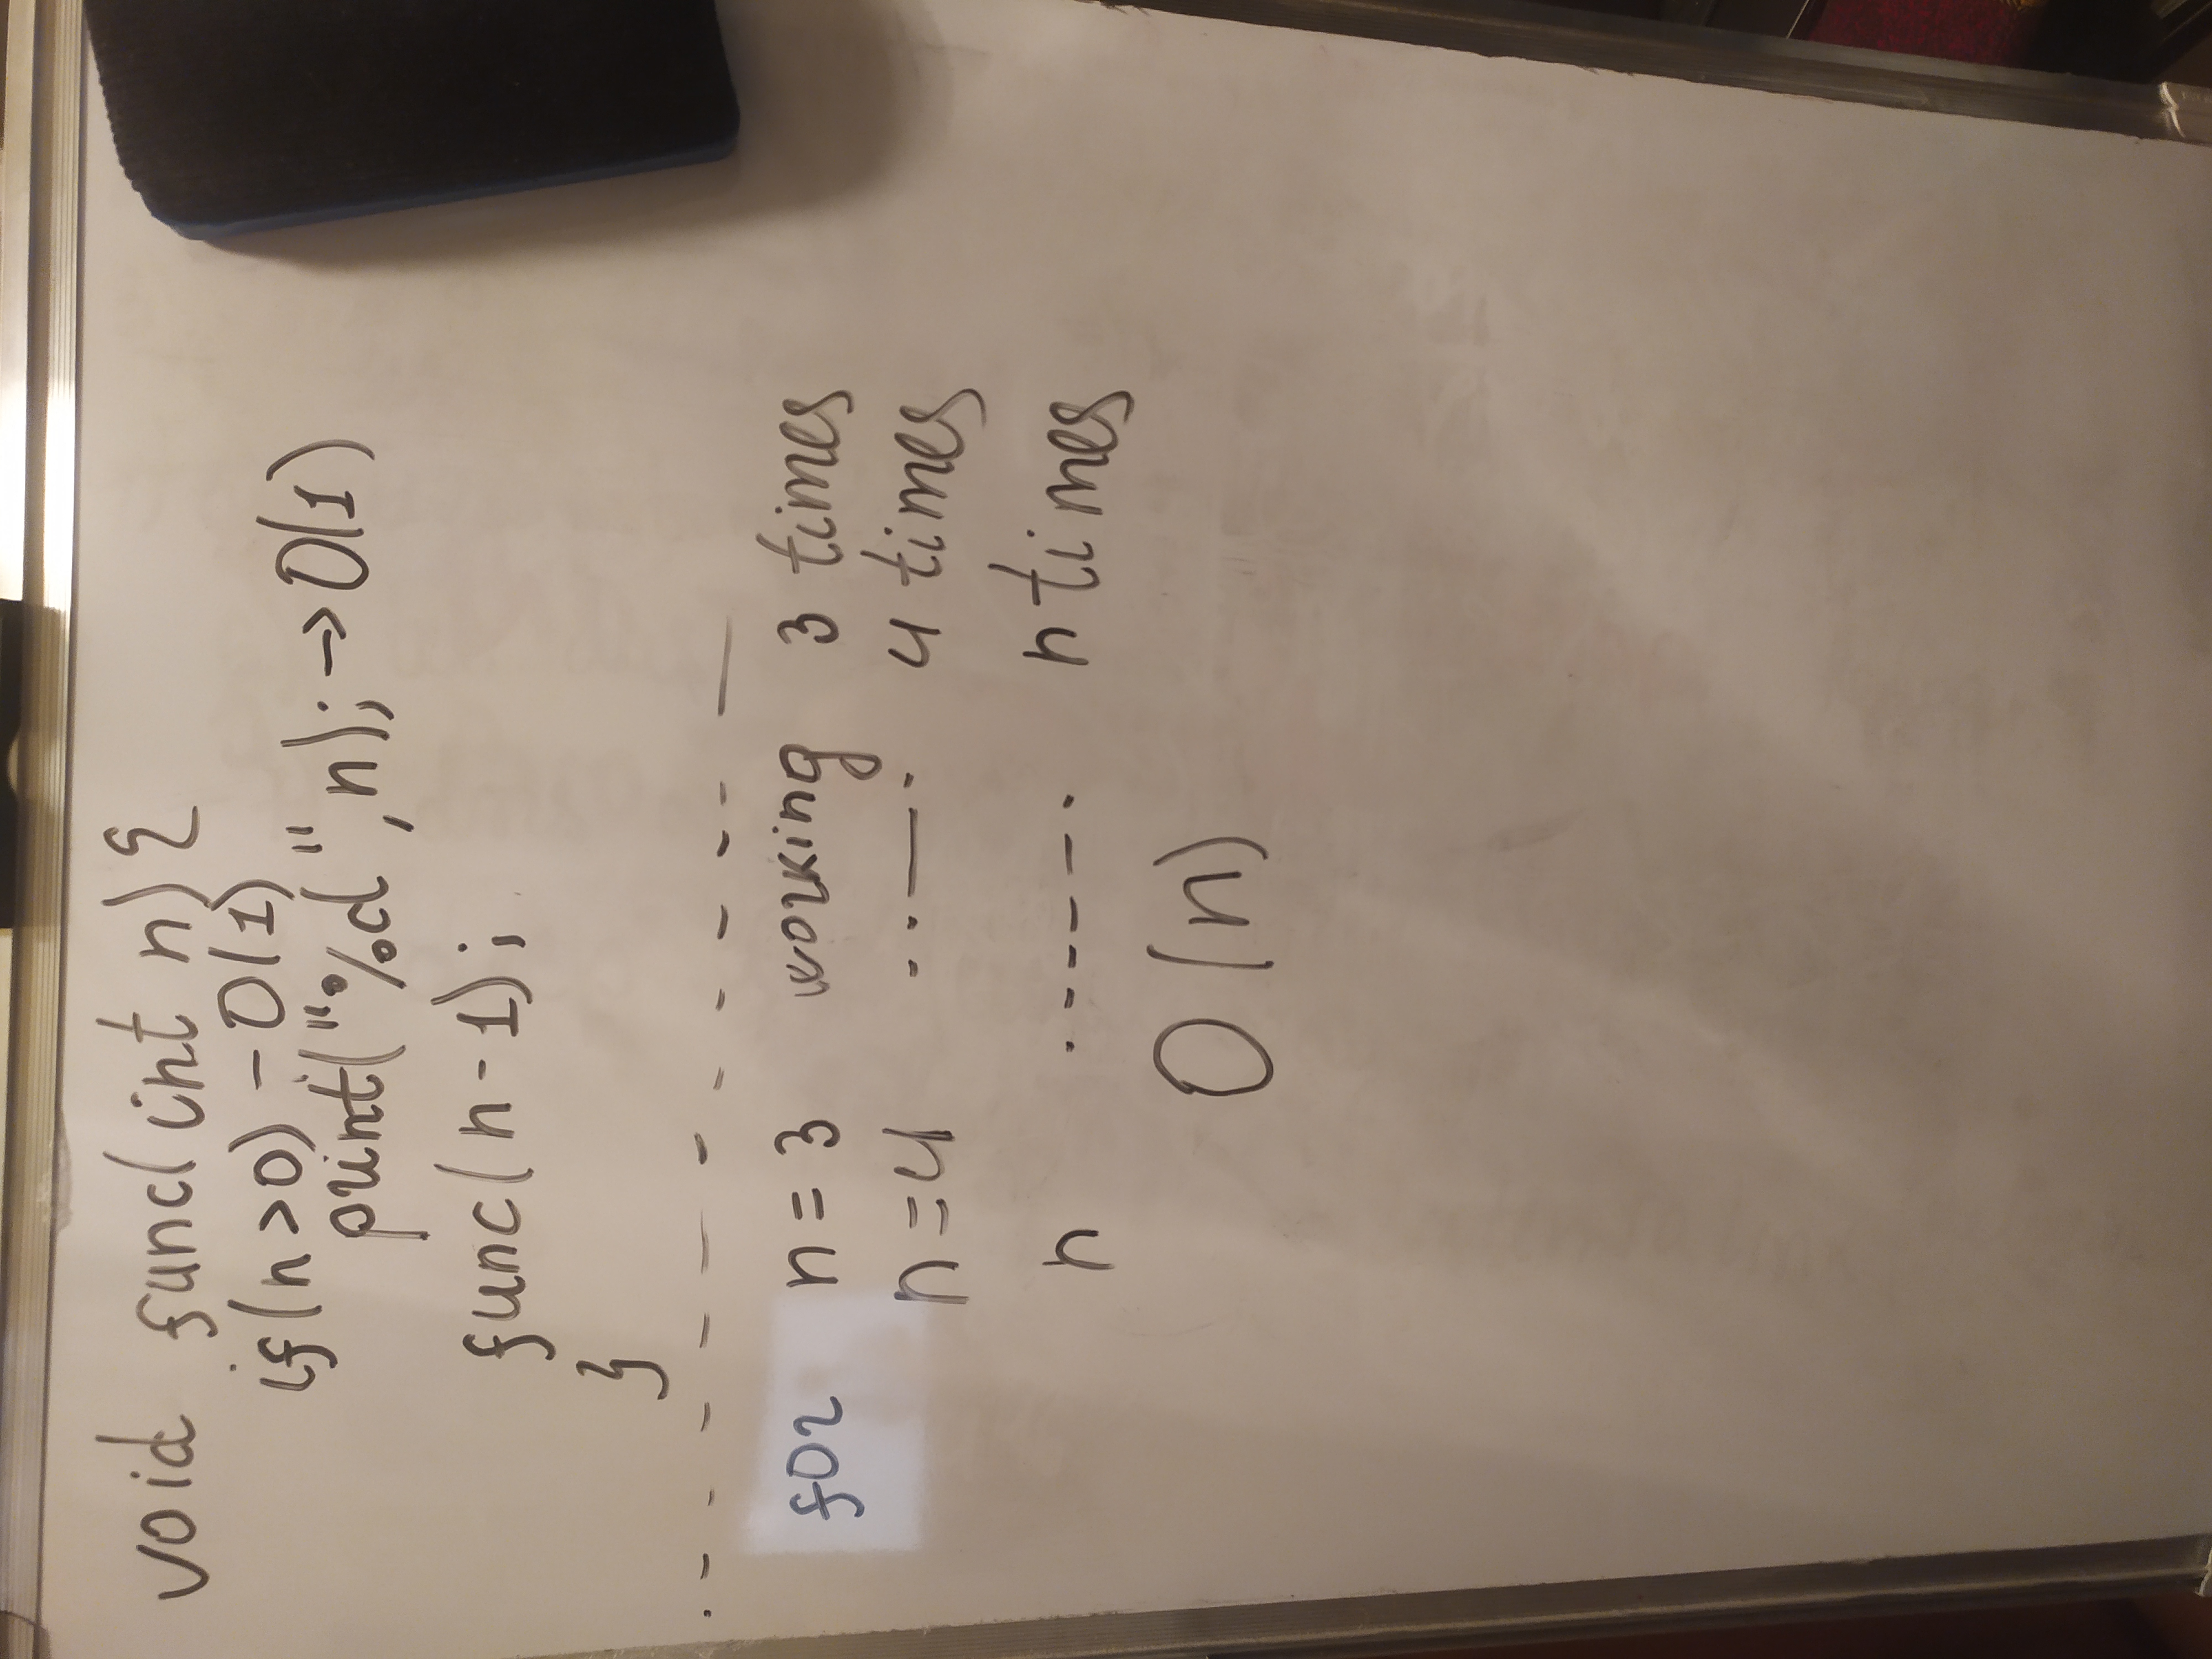 void func(int n) {
if(n>0) - O(1)
print("%d", n); → O(1)
func(n-1);
}
for n = 3 working 3 times
n = 4 - - — - 4 times
n . - - - - . n times
O(n)